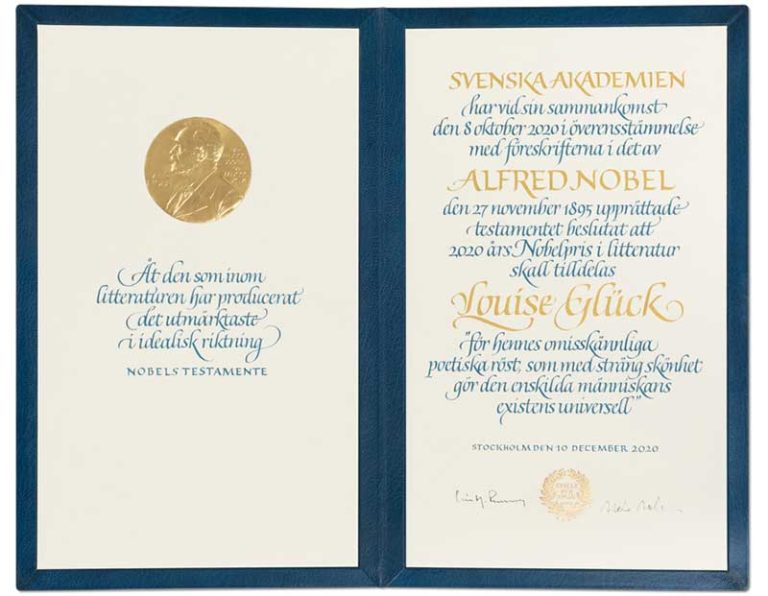 Åt den som inom
litteraturen har producerat
det utmärktaste
i idealisk riktning
NOBELS TESTAMENTE
SVENSKA AKADEMIEN
har vid sin sammankomst
den 8 oktober 2020 i överensstämmelse
med föreskrifterna i det av
ALFRED NOBEL
den 27 november 1895 upprättade
testamentet beslutat att
2020 års Nobelpris i litteratur
skall tilldelas
Louise Glück
"för hennes omisskännliga
poetiska röst, som med sträng skönhet
gör den enskilda människans
existens universell"
STOCKHOLM DEN 10 DECEMBER 2020